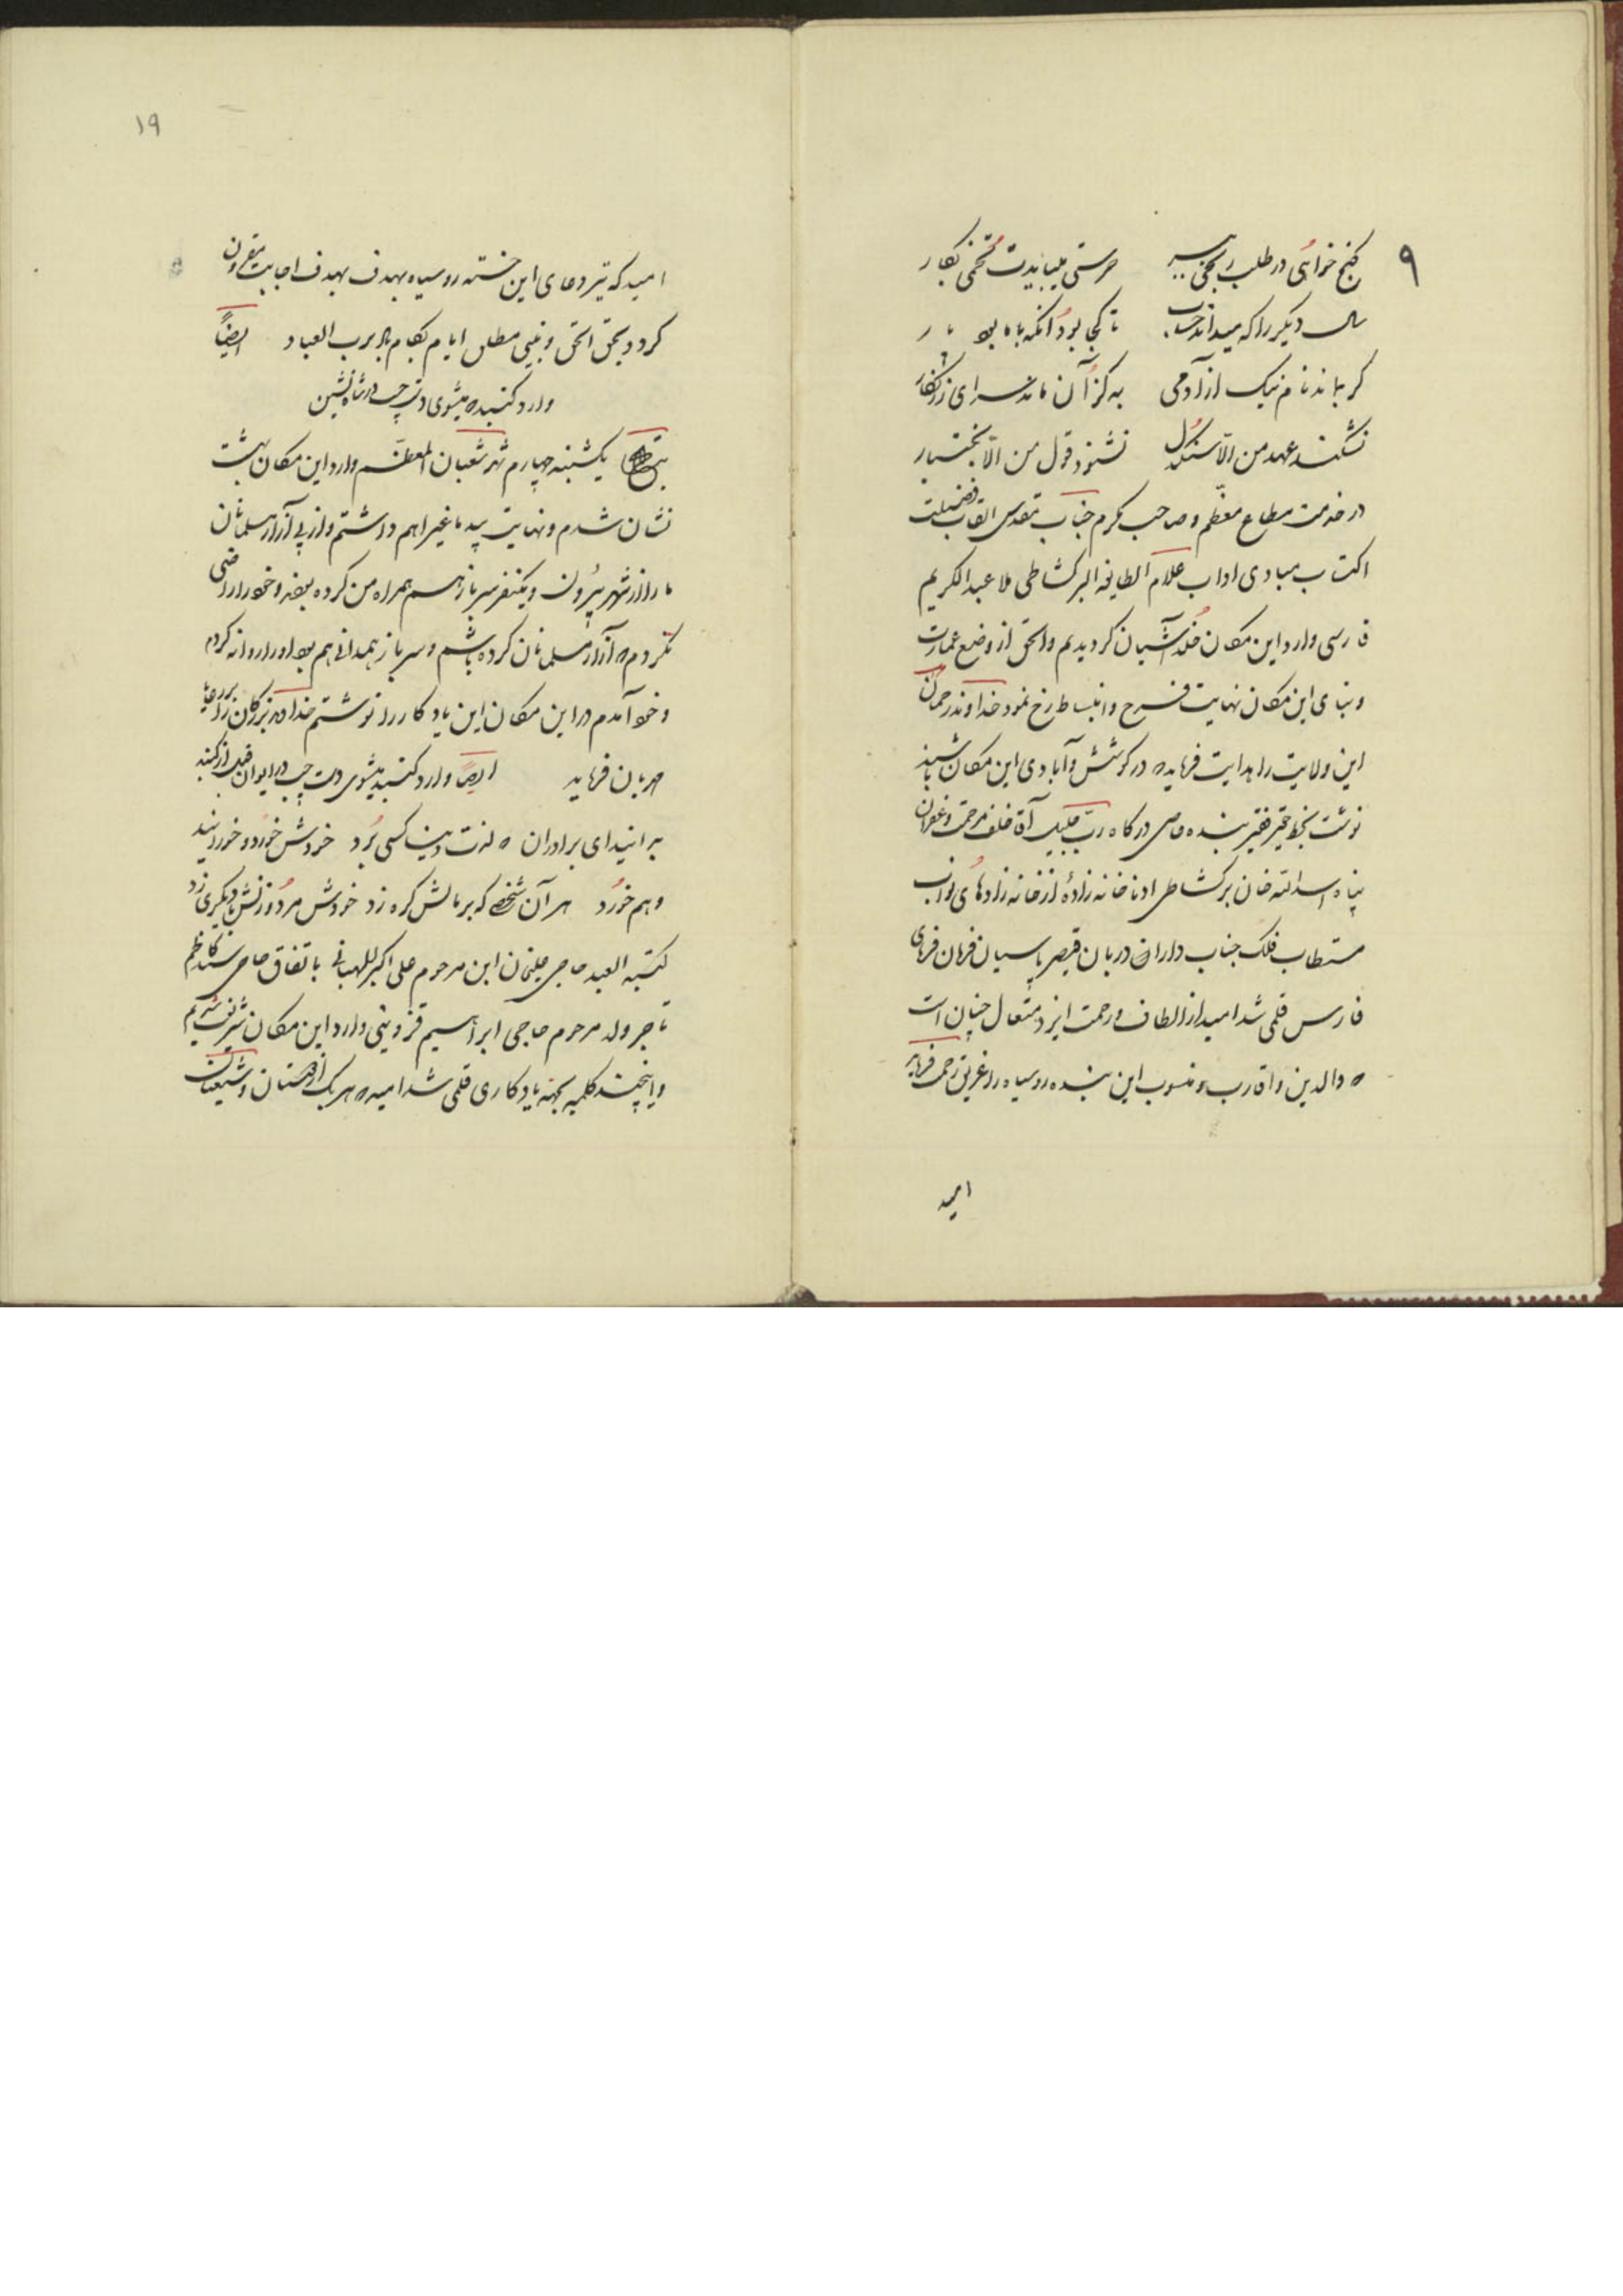 ۹
گنج خواهی در طلب رنجی ببر خرمنی میبایدت تخمی بکار
سال دیگر را که میداند حساب تا کجا بود آنکه با ما بود پار
گر بماند نام نیک از آدمی به کز آن ماند سرای زرنگار
نشکند عهد من الا سنگدل نشنود قول من الا بختیار
در خدمت مطاع معظم و صاحب مکرم جناب مقدس القاب فضیلت
اکتساب مبادی اداب علام الطایفه البرکشاطی ملا عبدالکریم
فارسی وارد این مکان خلد آشیان کردیدیم والحق از وضع عمارت
و بنای این مکان نهایت فرح و انبساط رخ نمود خداوند رحمان
این ولایت را هدایت فرماید که در کوشش و آبادی این مکان باشند
نوشت بخط حقیر فقیر بنده عاصی درکاه رب جلیل آقا خلف مرحمت و غفران
پناه اسدالله خان برکشاطی ادنا خانه زاده از خانه زادهای نواب
مستطاب فلک جناب داران دربان قیصر پاسبان فرمان فرمای
فارس قلمی شد امید از الطاف و رحمت ایزد متعال چنان است
که والدین و اقارب و منسوب این بنده روسیاه را غریق رحمت فرماید
امید
۱۹
امید که تیر دعای این خسته روسیاه بهدف بهدف اجابت مقرون
گردد بحق الحق و نبی مطلق ایام بکام باد برب العباد ایضاً
وارد کتیبه میشوی دست چپ در شاه نشین
بتاریخ یکشنبه چهارم شهر شعبان المعظم وارد این مکان بهشت
نشان شدم و نهایت پیدماغیرا هم داشتم و از پی آزار مسلمانان
مارا از شهر بیرون و یکنفر سرباز هم همراه من کرده بودند و خود را راضی
نکردم که آزار مسلمانان کرده باشم و سرباز همدانی هم بود او را روانه کردم
و خود آمدم در این مکان این یادکار را نوشتم خدا که بزرکان را بر رعایا
مهربان فرماید ایضاً وارد کتیبه میشوی دست چپ در ایوان قبل از کتیبه
بدانید ای برادران که لذت دنیا کسی برد خودش خورد و خورانید
و هم خورد هر آن شخص که بر مالش کره زد خودش مرد و زنش با دیکری زد
کتبه العبد حاجی علیخان ابن مرحوم علی اکبر باتفاق حاجی سید کاظم
تاجر ولد مرحوم حاجی ابراهیم قزوینی وارد این مکان شریف شدیم
و اینچند کلمه بجهة یادکاری قلمی شد امید که هر یک از دوستان و شیعیان